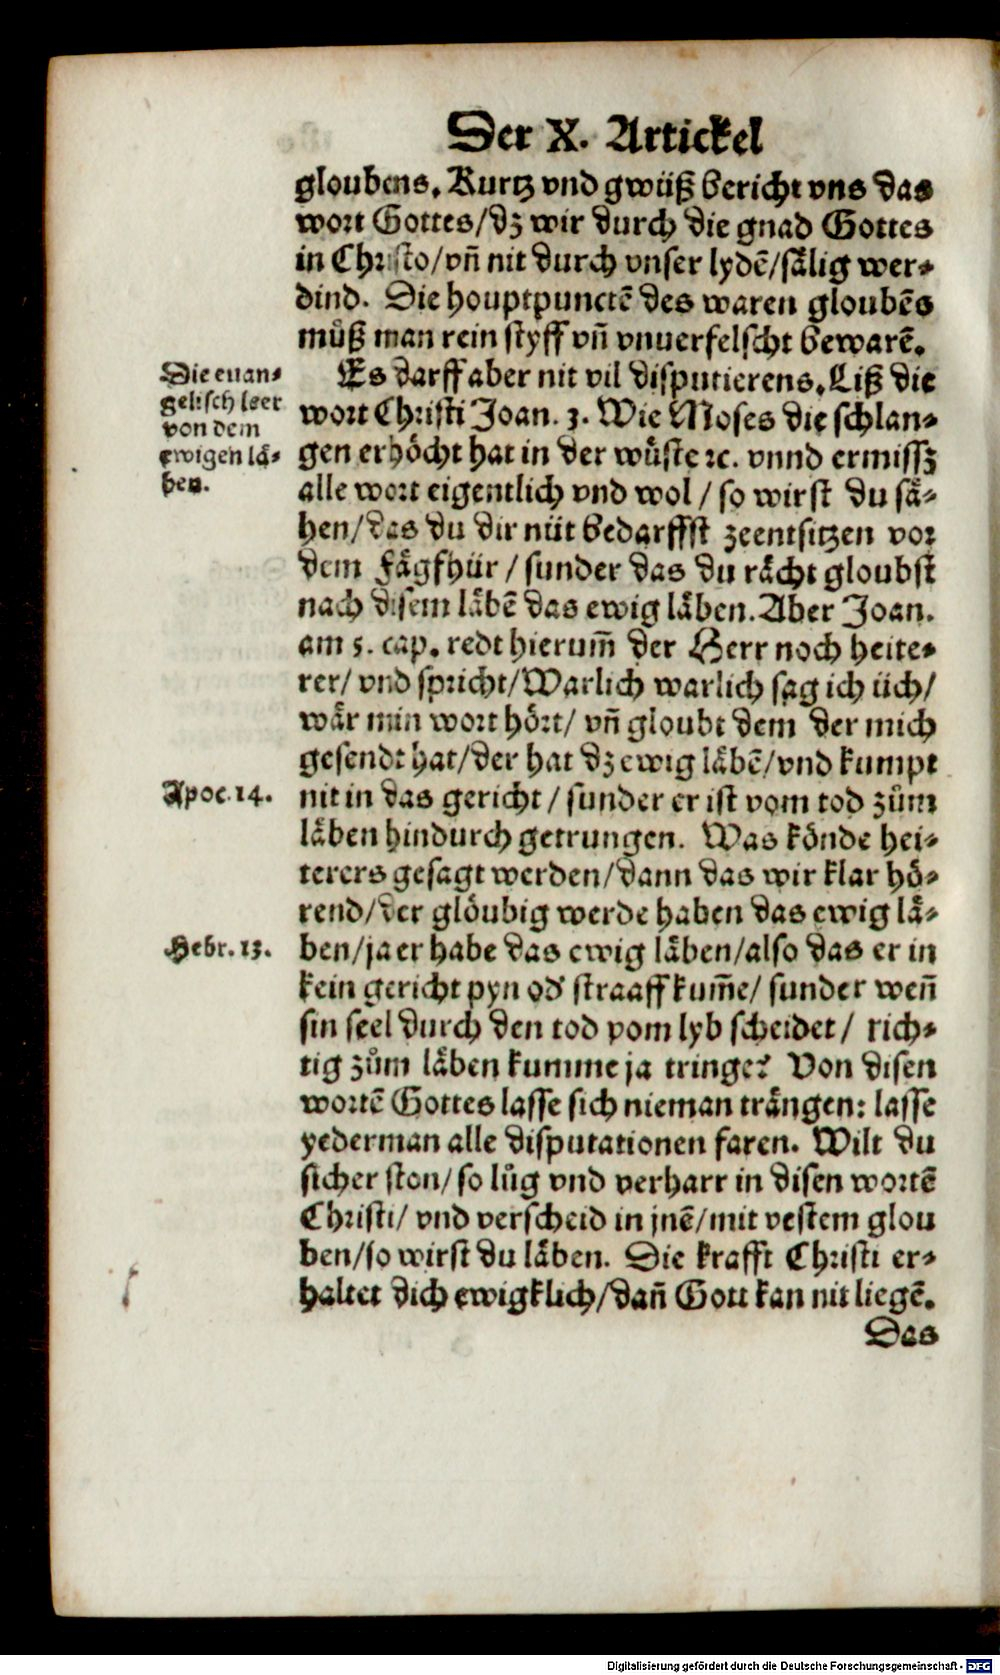 Der X. Artickel
gloubens. Kurtz vnd gwüß bericht vns das
wort Gottes/dz wir durch die gnad Gottes
in Christo/vñ nit durch vnser lydē/sälig wer⸗
dind. Die houptpunctē des waren gloubēs
můß man rein styff vñ vnuerfelscht bewarē.
Die euan⸗
gelisch leer
von dem
ewigen lä⸗
ben.
Es darff aber nit vil disputierens. Liß die
wort Christi Joan. 3. Wie Moses die schlan⸗
gen erhöcht hat in der wůste ꝛc. vnnd ermissz
alle wort eigentlich vnd wol / so wirst du sä⸗
hen/das du dir nüt bedarffst zeentsitzen vor
dem Fägfhür / sunder das du rächt gloubst
nach disem läbē das ewig läben. Aber Joan.
am 5. cap. redt hierum̃ der Herr noch heite⸗
rer/ vnd spricht/Warlich warlich sag ich üch/
wär min wort hört/ vñ gloubt dem der mich
gesendt hat/der hat dz ewig läbē/vnd kumpt
Apoc. 14.
nit in das gericht / sunder er ist vom tod zům
läben hindurch getrungen. Was könde hei⸗
terers gesagt werden/dann das wir klar hö⸗
rend/der glöubig werde haben das ewig lä⸗
Hebr. 13.
ben/ja er habe das ewig läben/also das er in
kein gericht pyn od' straaff kum̃e/ sunder weñ
sin seel durch den tod vom lyb scheidet/ rich⸗
tig zům läben kumme ja tringe? Von disen
wortē Gottes lasse sich nieman trängen: lasse
yederman alle disputationen faren. Wilt du
sicher ston/so lůg vnd verharr in disen wortē
Christi/ vnd verscheid in jnē/mit vestem glou
ben/so wirst du läben. Die krafft Christi er⸗
haltet dich ewigklich/dañ Gott kan nit liegē.
Das
Digitalisierung gefördert durch die Deutsche Forschungsgemeinschaft - DFG